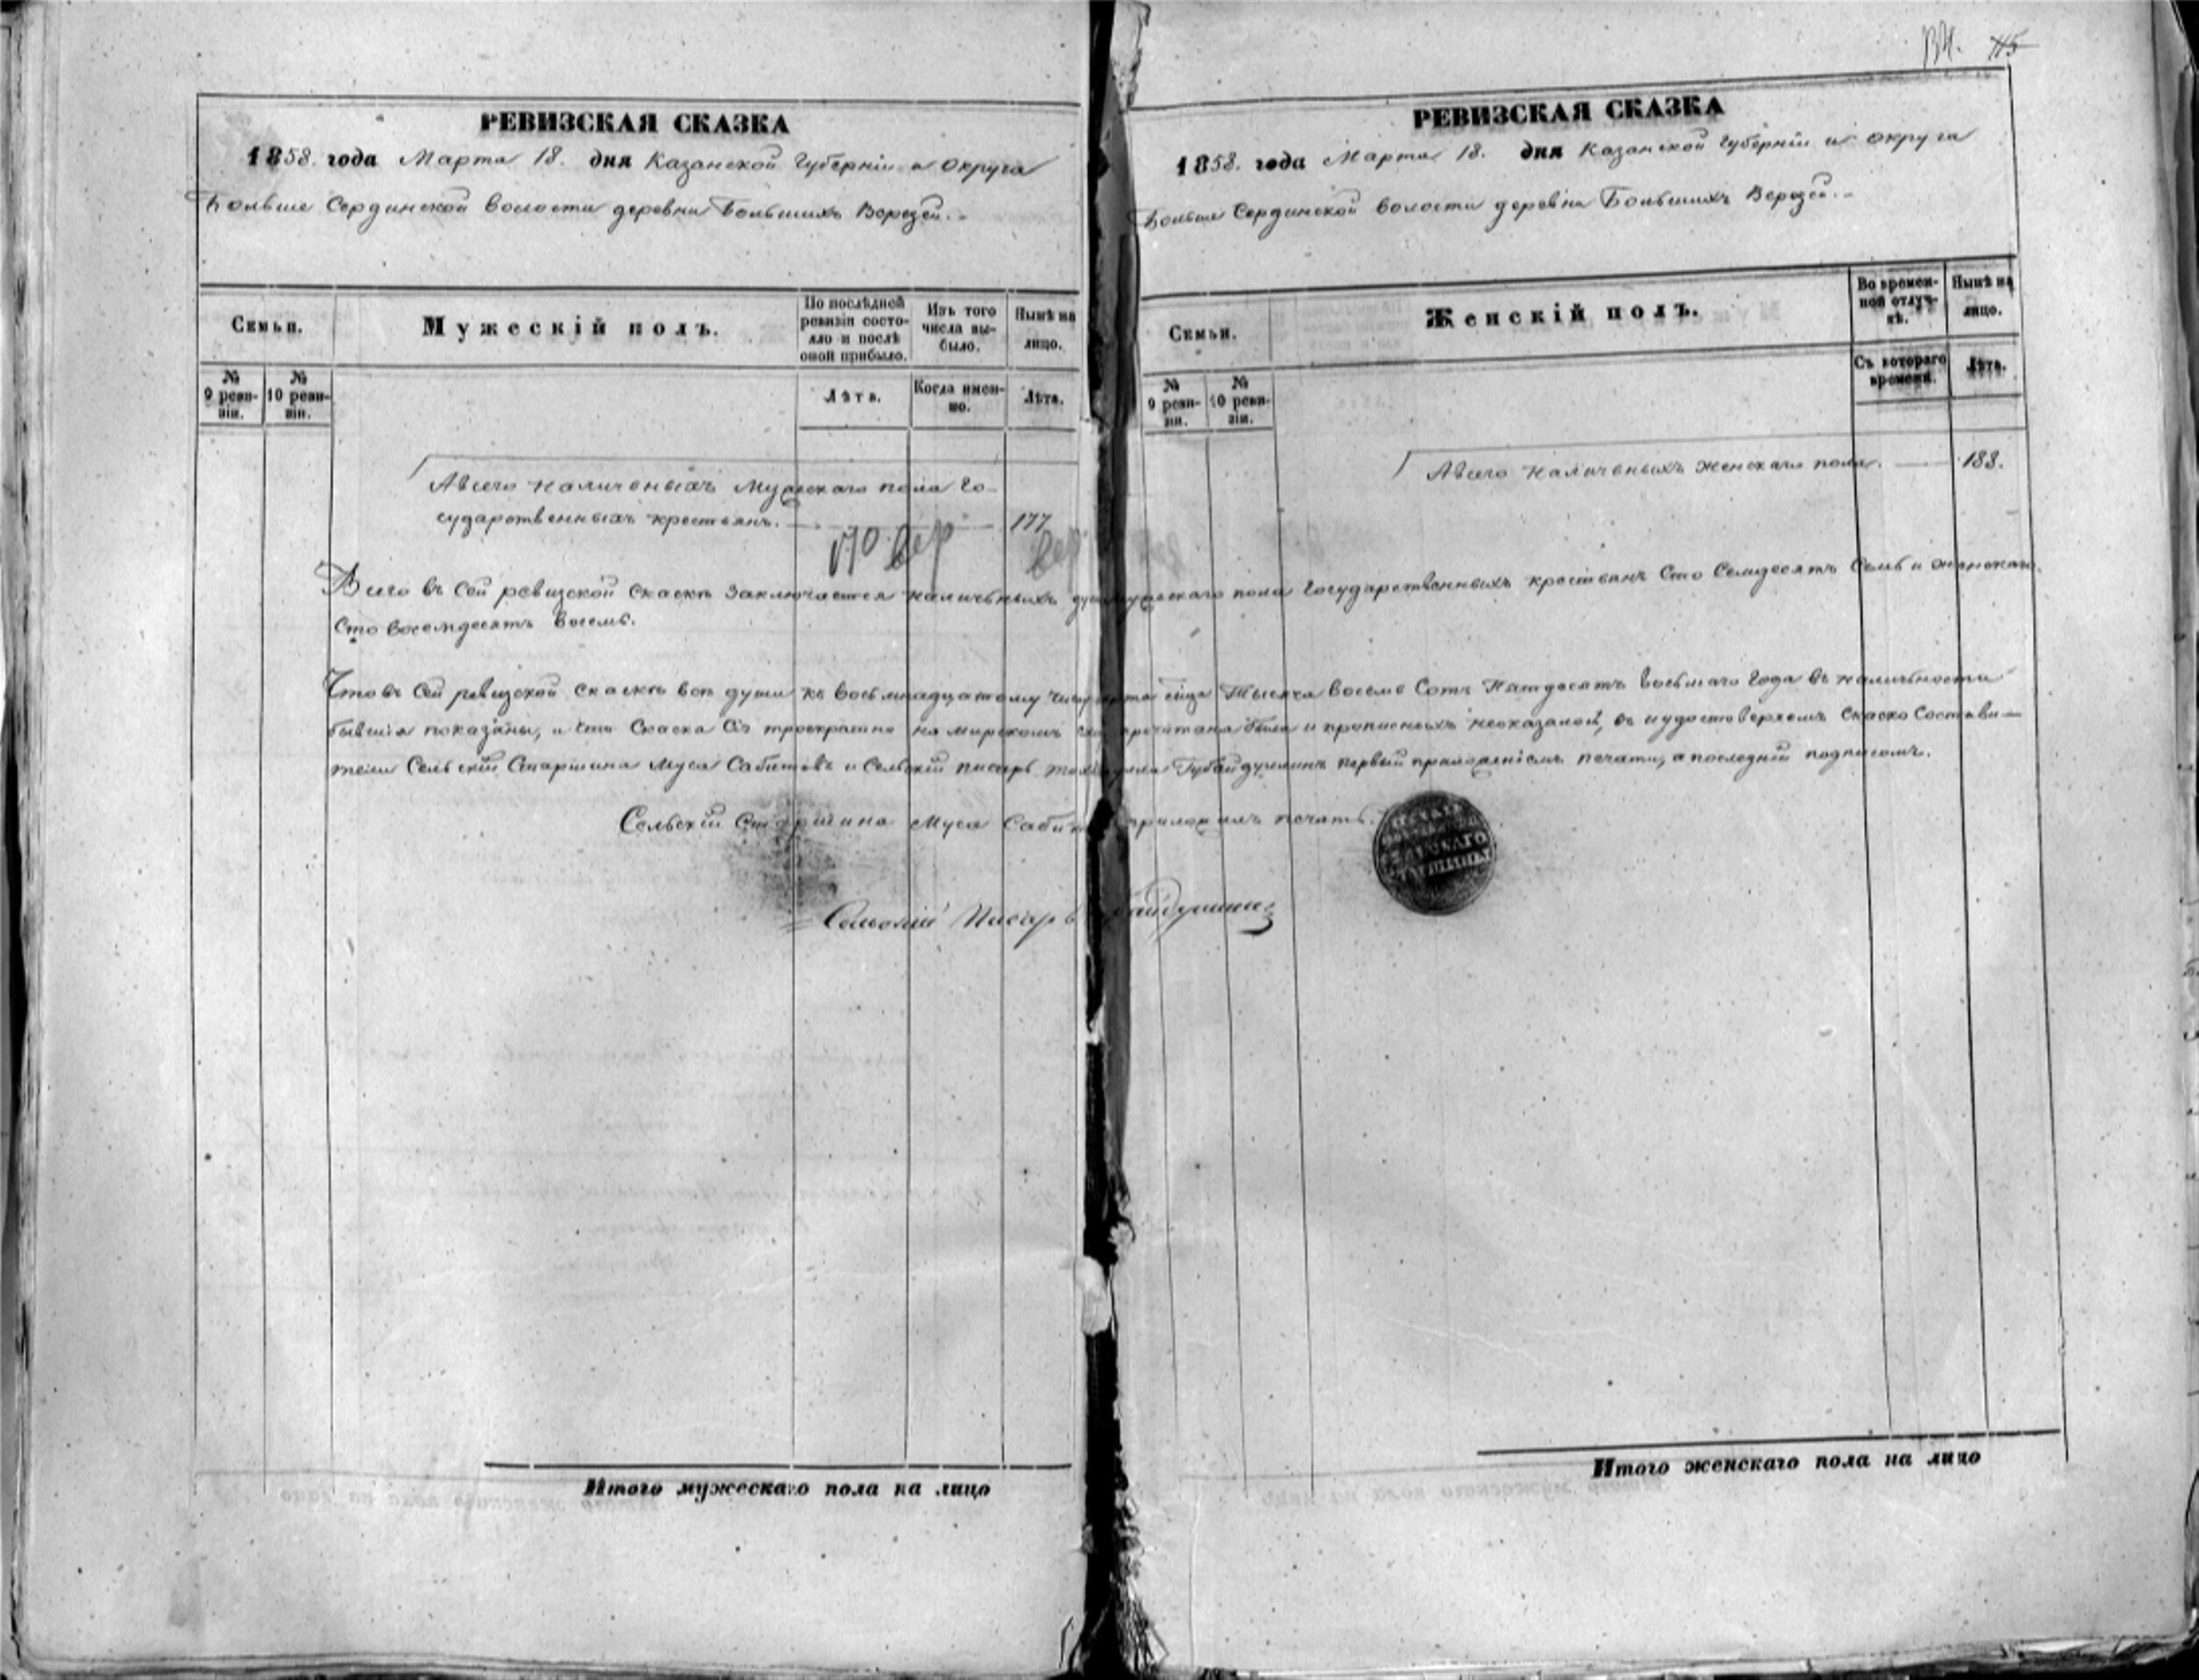 РЕВИЗСКАЯ СКАЗКА
1858. года Марта 18. дня Казанской Губерніи и Округа
Больше Сердинской волости деревни Большихъ Верезей.
Семьи.
Мужескій полъ.
По послѣдней ревизіи состояло и послѣ оной прибыло.
Изъ того числа выбыло.
Нынѣ на лицо.
№ 9 ревизіи.
№ 10 ревизіи.
Лѣта.
Когда именно.
Лѣта.
Авсего наличныхъ Мужескаго пола Го-
сударственныхъ крестьянъ. 177
Итого мужескаго пола на лицо
134. 115
РЕВИЗСКАЯ СКАЗКА
1858. года Марта 18. дня Казанской Губерніи и округа
Больше Сердинской волости деревни Большихъ Верезей.
Семьи.
Женскій полъ.
Во временной отлучкѣ.
Нынѣ на лицо.
№ 9 ревизіи.
№ 10 ревизіи.
Съ котораго времени.
Лѣта.
Авсего наличныхъ женскаго пола. 188.
Всего въ сей ревизской скаскѣ заключается наличныхъ мужескаго пола Государственныхъ крестьянъ Сто Семдесятъ Семь и женскаго
Сто восемдесятъ восемь.
Что въ Сей ревизской скаскѣ всѣ души къ восьмнадцатому Тысяча восемь Сотъ Пятдесятъ восьмаго года въ наличности
бывшія показаны, и что Скаска Сія троекратно на мирскомъ прочитана была и прописныхъ неоказалось, въ удостоверяемъ Скаско Состави-
тели Сельскій Старшина Муса Сабитовъ и Сельскій писарь Губайдуллинъ первый приложеніемъ печати, а последній подписомъ.
Сельскій Старшина Муса приложилъ печать.
СЕЛЬСКАГО
СТАРШИНЫ
Сельскій Писарь
Итого женскаго пола на лицо